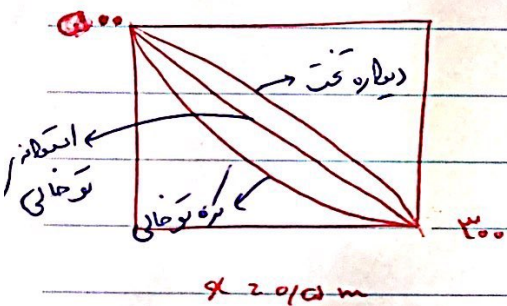 ۵۰۰
دیواره تخت
استوانه
توخالی
کره توخالی
۳۰۰
x = ۰/۵ m